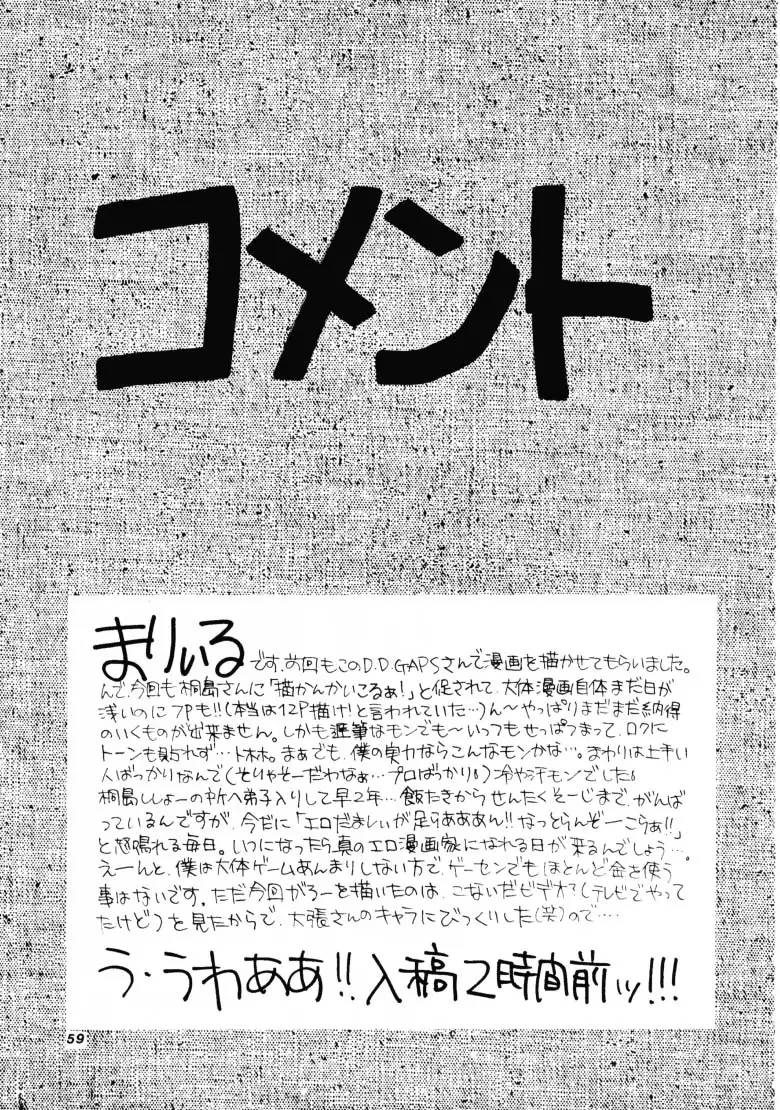 コメント
まりぃる です。前回もこのD.D.GAPSさんで漫画を描かせてもらいました。
んで、今回も桐島さんに「描かんかいこるぁ!」と促されて、大体漫画自体まだ日が
浅いのに7Pも!!(本当は12P描け!と言われていた…)ん〜やっぱりまだまだ納得
のいくものが出来ません。しかも遅筆なモンでも〜いつもせっぱつまって、ロクに
トーンも貼れず…トホホ。まぁでも、僕の実力ならこんなモンかな…。まわりは上手い
人ばっかりなんで(そりゃそーだわなぁ…プロばっかり!)冷や汗モンでした!
桐島ししょーの所へ弟子入りして早2年…飯たきからせんたくそーじまで、がんば
っているんですが、今だに「エロだましいが足らあああん!!なっとらんぞーーこらぁ!!」
と怒鳴れる毎日。いつになったら真のエロ漫画家になれる日が来るんでしょう…。
えーんと、僕は大体ゲームあんまりしない方で、ゲーセンでもほとんど金を使う
事はないです。ただ今回がろーを描いたのは、こないだビデオ?(テレビでやって
たけど)を見たからで、大張さんのキャラにびっくりした(笑)ので…‥
う・うわああ!!入稿2時間前ッ!!!
59